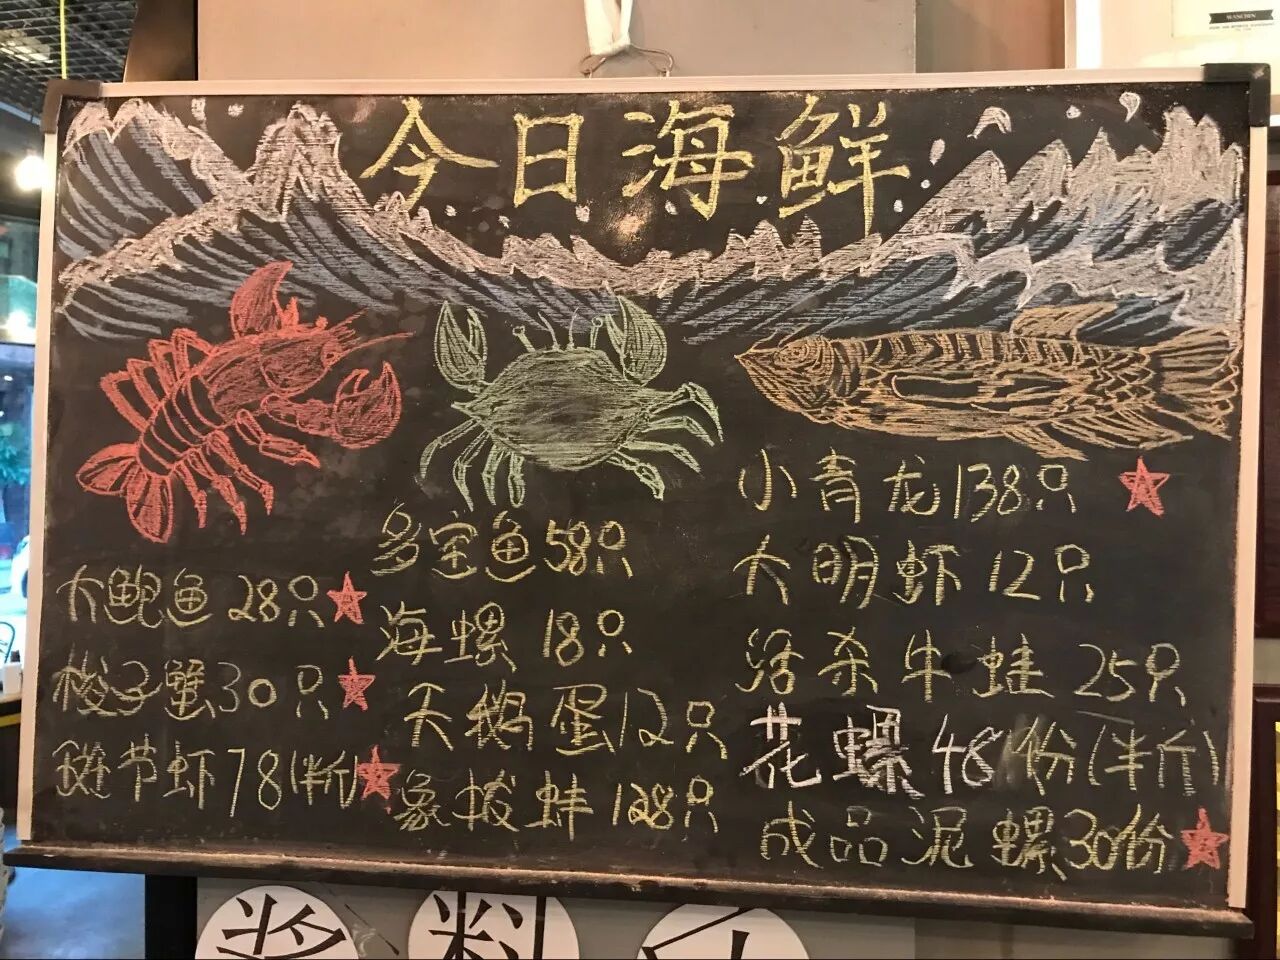 今日海鲜
大鲍鱼 28只
梭子蟹30只
斑节虾78(半斤)
多宝鱼58只
海螺 18只
天鹅蛋12只
象拔蚌128只
小青龙138只
大明虾12只
活杀牛蛙 25只
花螺48份(半斤)
成品泥螺30份
酱料